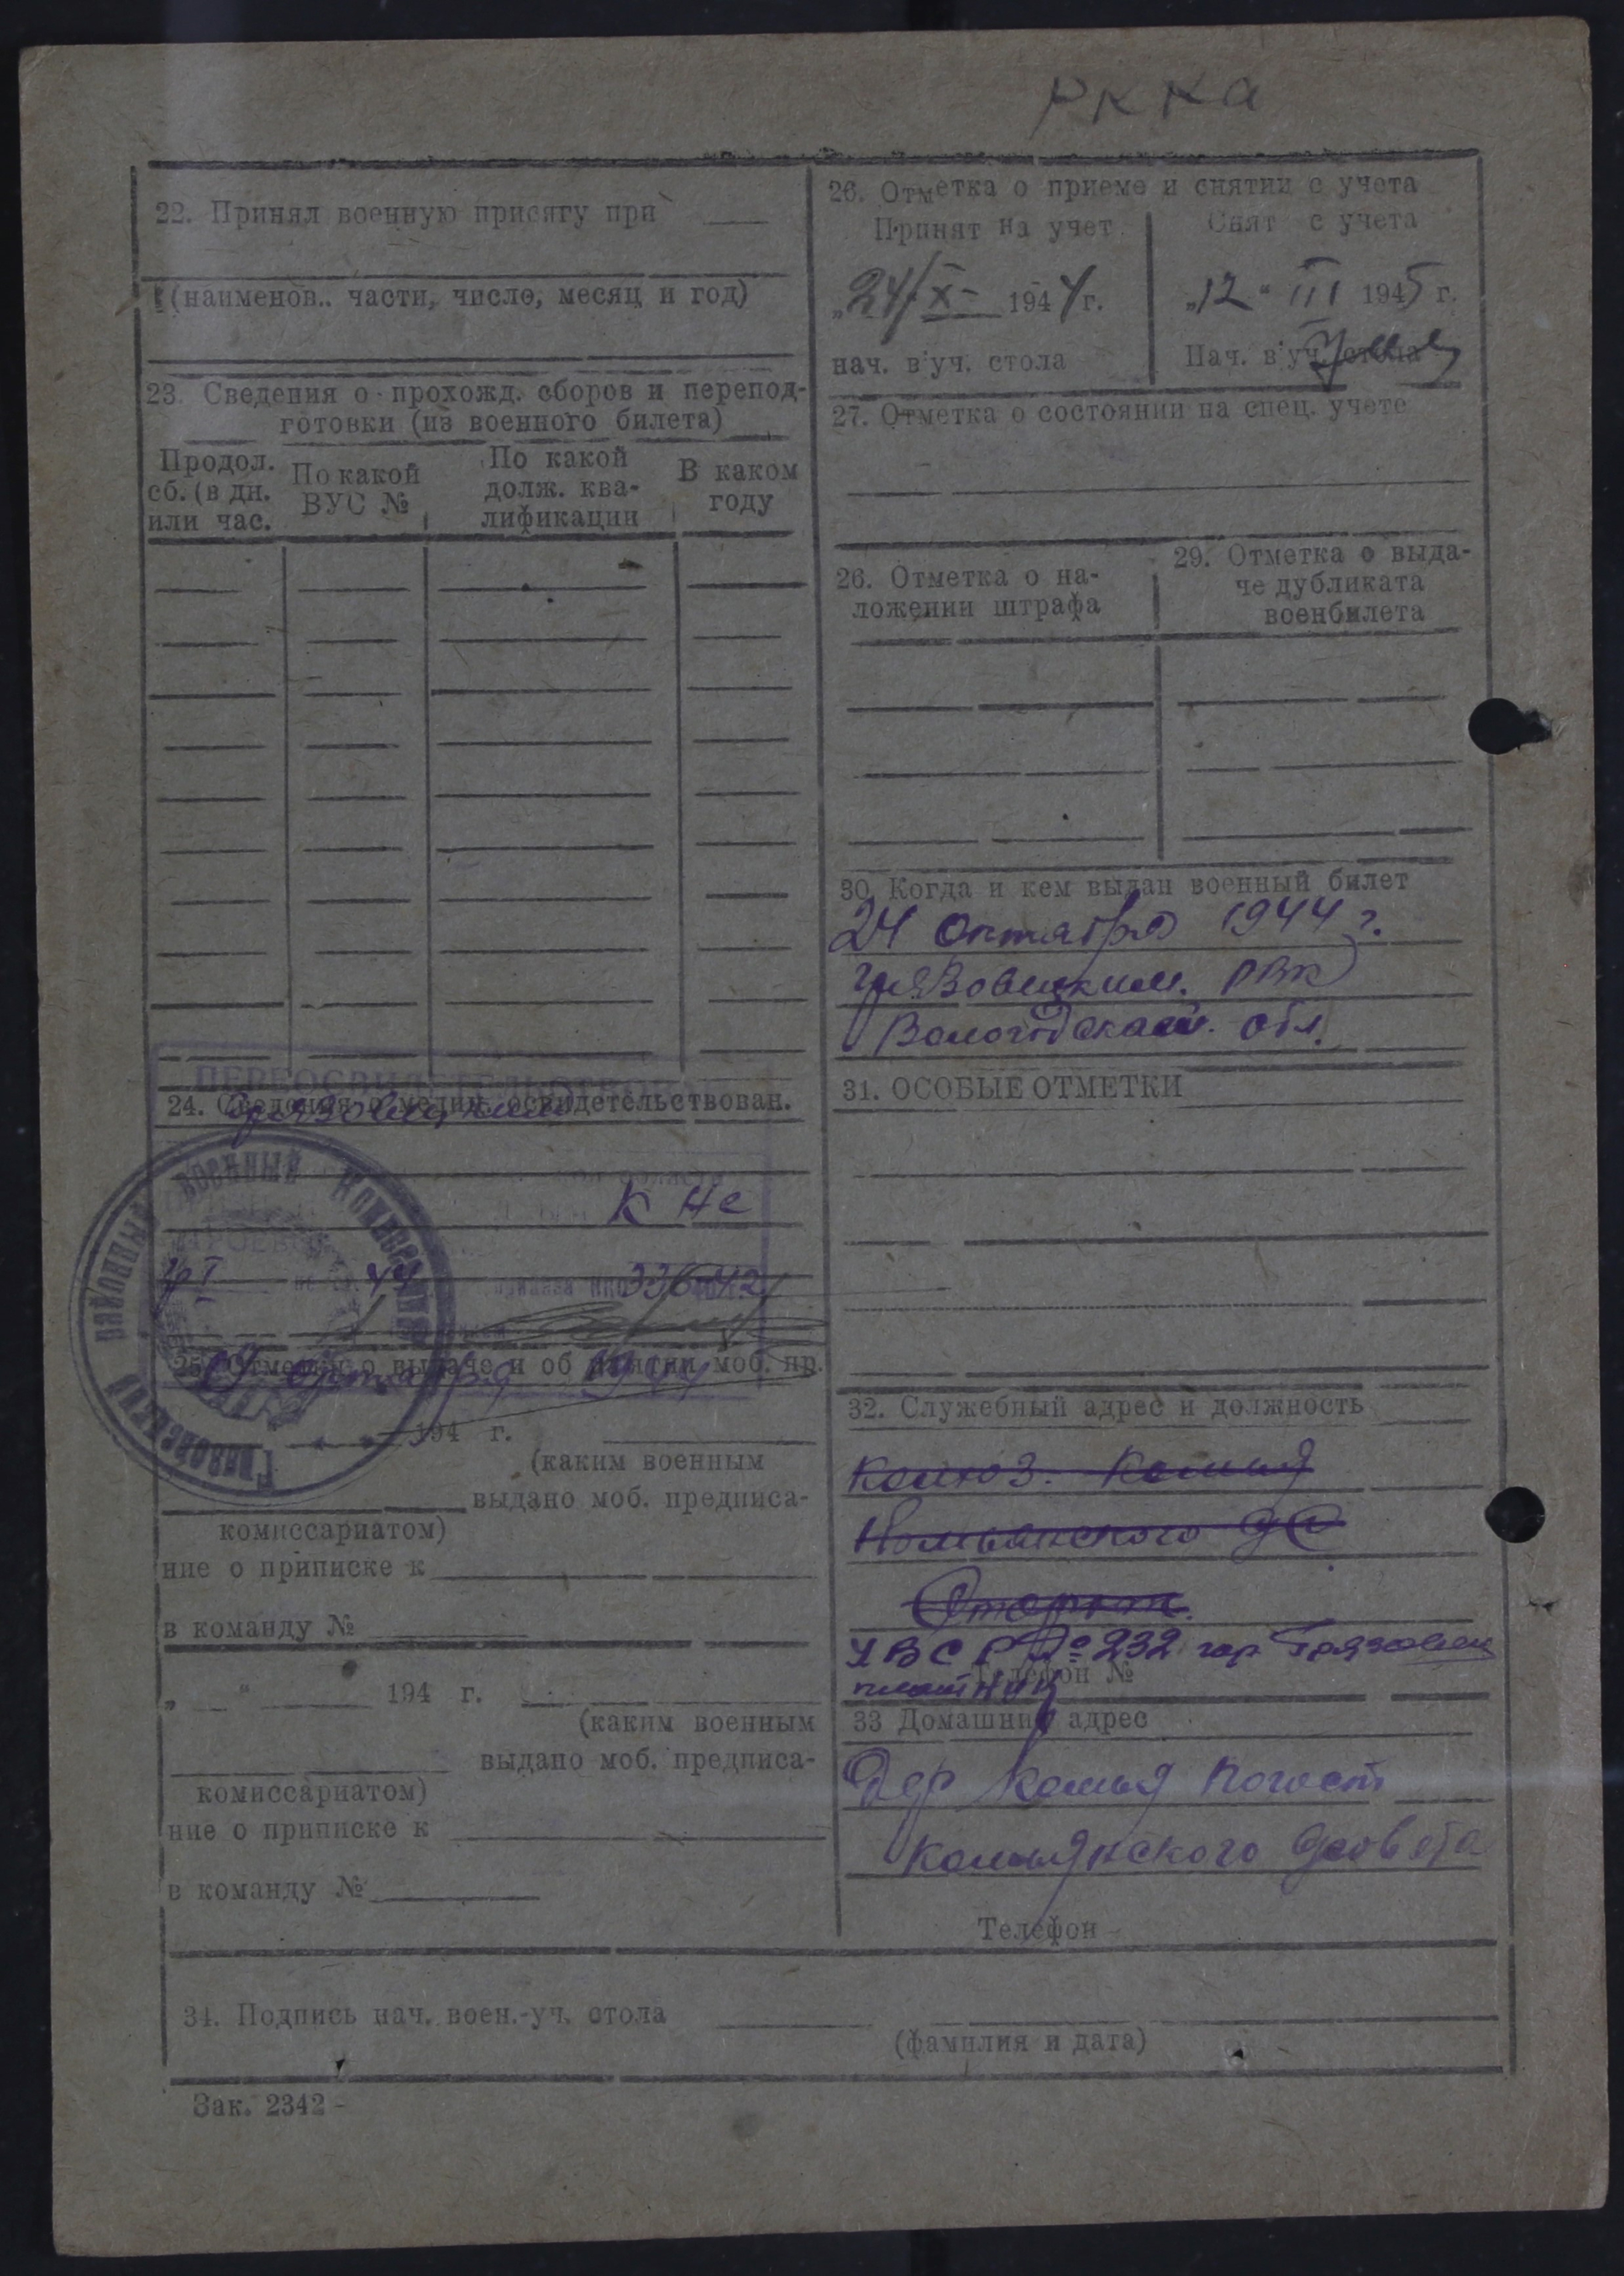 РККА
22. Принял военную присягу при
(наименов.. части, число, месяц и год)
23. Сведения о прохожд. сборов и перепод-
готовки (из военного билета)
Продол.
сб. (в дн.
или час.
По какой
ВУС №
По какой
долж. ква-
лификации
В каком
году
ПЕРЕОСВИДЕТЕЛЬСТВОВАН
24. Сведения о медиц. освидетельствован.
К не
гр I 44 приказа НКО 336-42
25. Отметка о выдаче и об из'ятии моб. пр.
24 октября 1944
районный военный комиссариат
194 г.
(каким военным
выдано моб. предписа-
комиссариатом)
ние о приписке к
в команду №
„ “ 194 г.
(каким военным
выдано моб. предписа-
комиссариатом)
ние о приписке к
в команду №
26. Отметка о приеме и снятии с учета
Принят на учет
Снят с учета
„24/X- 1944 г.
„12“ III 1945 г.
нач. в'уч. стола
Нач. в'уч. стола
27. Отметка о состоянии на спец. учете
26. Отметка о на-
ложении штрафа
29. Отметка о выда-
че дубликата
военбилета
30. Когда и кем выдан военный билет
24 октября 1944 г.
Грязовецким. РВК
Вологодской. обл.
31. ОСОБЫЕ ОТМЕТКИ
32. Служебный адрес и должность
УВСР № 232 гор Грязовец
Телефон №
плотник
33 Домашний адрес
Дер Комья погост
Комьянского с/совета
Телефон
34. Подпись нач. воен.-уч. стола
(фамилия и дата)
Зак. 2342 -